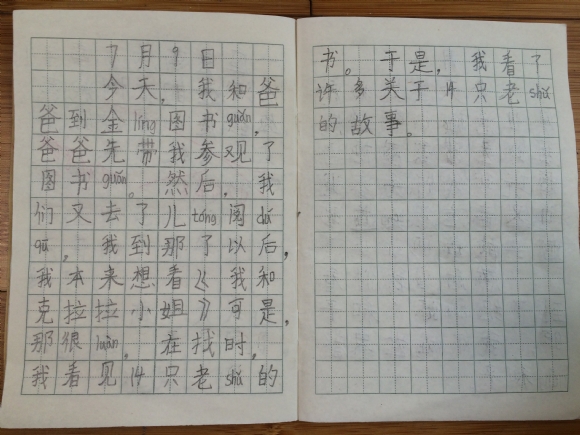 7月9日
今天，我和爸
爸到金líng图书guǎn，
爸爸先带我参观了
图书guǎn。然后，我
们又去了儿tóng阅dú
qū，我到那了以后，
我本来想看《我和
克拉拉小姐》可是，
那很luàn。在找时，
我看见14只老shǔ的
书。于是，我看了
许多关于14只老shǔ
的故事。